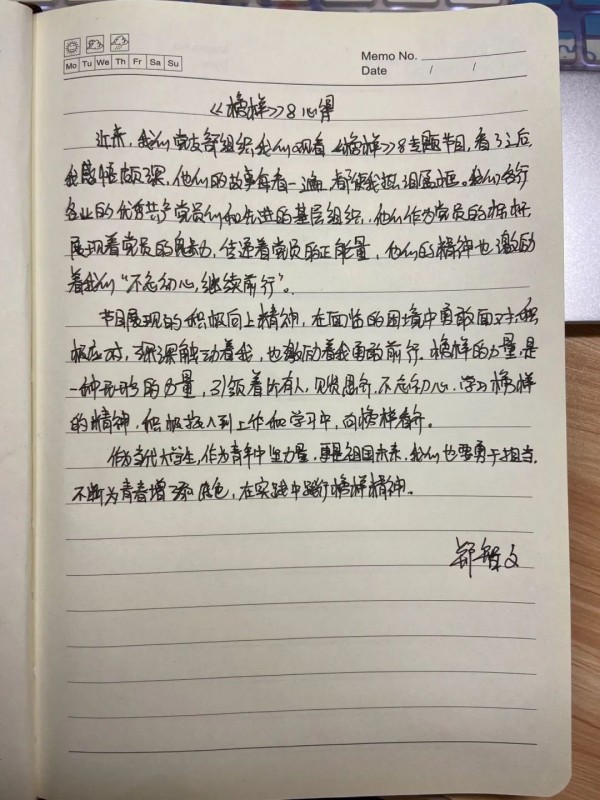 Mo Tu We Th Fr Sa Su
Memo No.
Date / /
《榜样》8心得
近来,我们党支部组织我们观看《榜样》8专题节目,看了之后,
我感悟颇深,他们的故事每看一遍,都使我热泪盈眶。我们各行
各业的优秀共产党员们和先进的基层组织,他们作为党员的榜样,
展现着党员的魅力,传递着党员的正能量,他们的精神也激励
着我们“不忘初心,继续前行”。
节目展现的积极向上精神,在面临的困境中勇敢面对,积
极应对,深深触动着我,也激励着我勇敢前行。榜样的力量,是
一种无形的力量,引领着所有人,见贤思齐,不忘初心,学习榜样
的精神,积极投入到工作和学习中,向榜样看齐。
作为当代大学生,作为青年中坚力量,更是祖国未来,我们也要勇于担当,
不断为青春增添底色,在实践中践行榜样精神。
郑智文